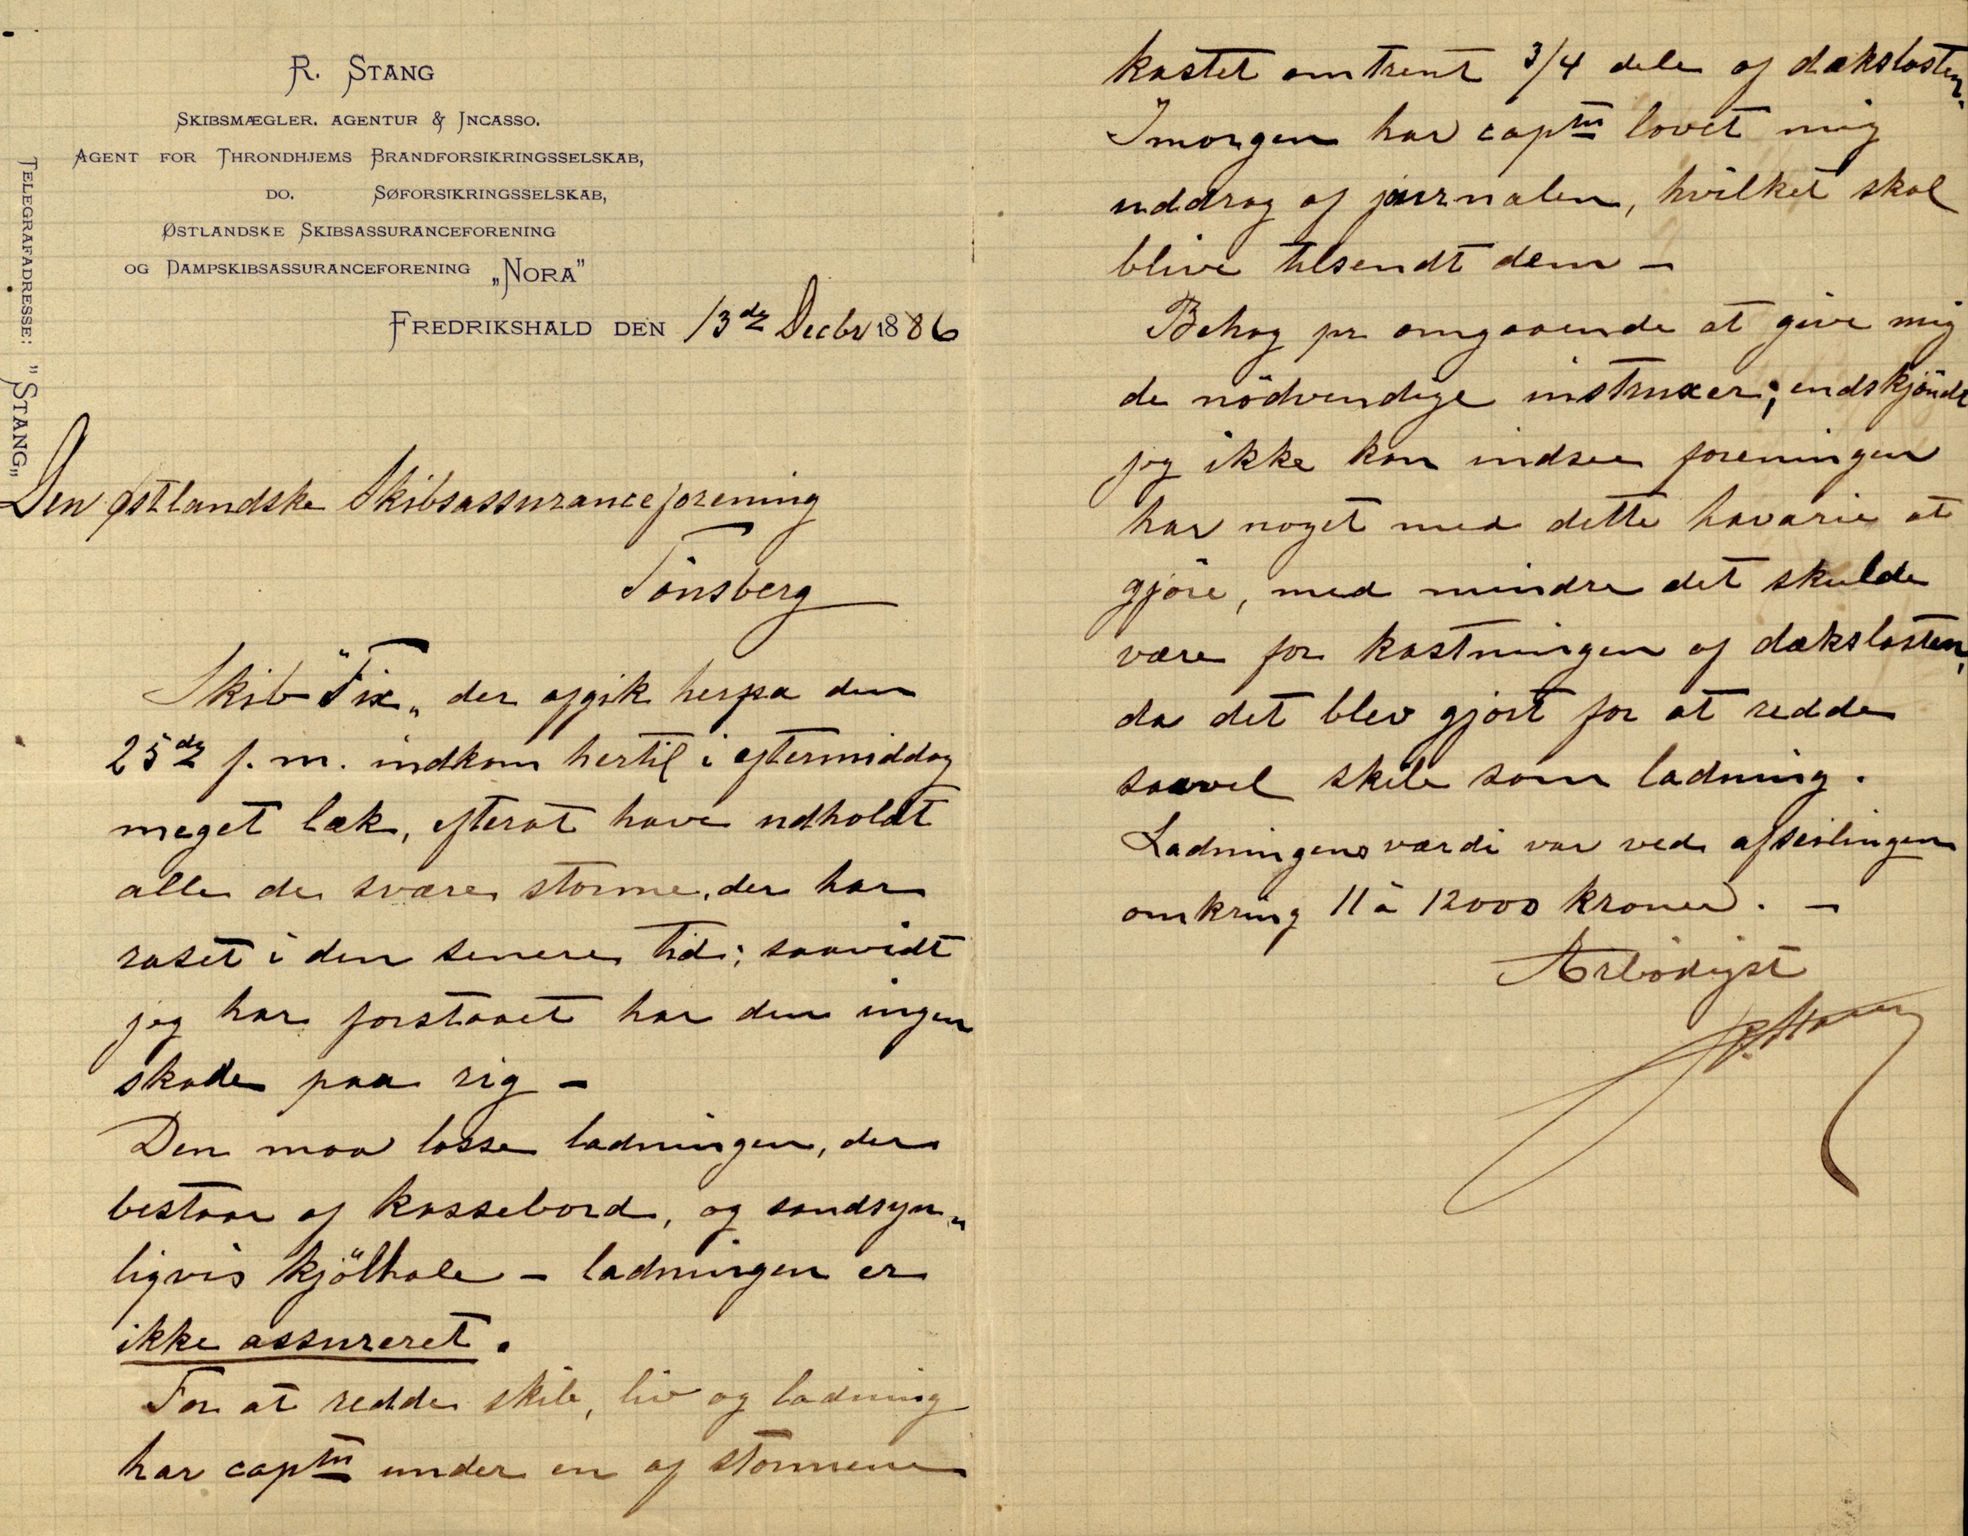 R. Stang
Skibsmægler. Agentur & Incasso.
Agent for Throndhjems Brandforsikringsselskab,
do. Søforsikringsselskab,
Østlandske Skibsassuranceforening
og Dampskibsassuranceforening „Nora"
Telegrafadresse: "Stang„
Fredrikshald den 13de Decbr 1886
Den Østlandske Skibsassuranceforening
Tönsberg
Skib "Fix„ der afgik herfra den
25de f. m. indkom hertil i eftermiddag
meget læk, efterat have udholdt
alle de svære storme, der har
raset i den senere tid; saavidt
jeg har forstaaet har den ingen
skade paa sig –
Den maa losse ladningen, der
bestaar af kassebord, og sandsyn„
ligvis kjölhale – ladningen er
ikke assureret.
For at redde skib, liv og ladning
har captn under en af stormene
kastet omtrent 3/4 dele af dækslasten.
Imorgen har captn lovet mig
uddrag af jurnalen, hvilket skal
blive tilsendt dem –
Behag pr omgaaende at give mig
de nödvendige instruxer; endskjöndt
jeg ikke kan indsee foreningen
har noget med dette havarie at
gjöre, med mindre det skulde
være for kastningen af dækslasten,
da det blev gjort for at redde
saavel skib som ladning.
Ladningens værdi var ved afseilingen
omkring 11 à 12000 kroner. –
Ærbödigst
R. Stang